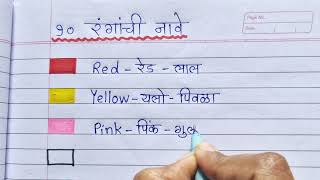 Page No.
Date
१० रंगांची नावे
Red - रेड - लाल
Yellow - यलो - पिवळा
Pink - पिंक - गुल